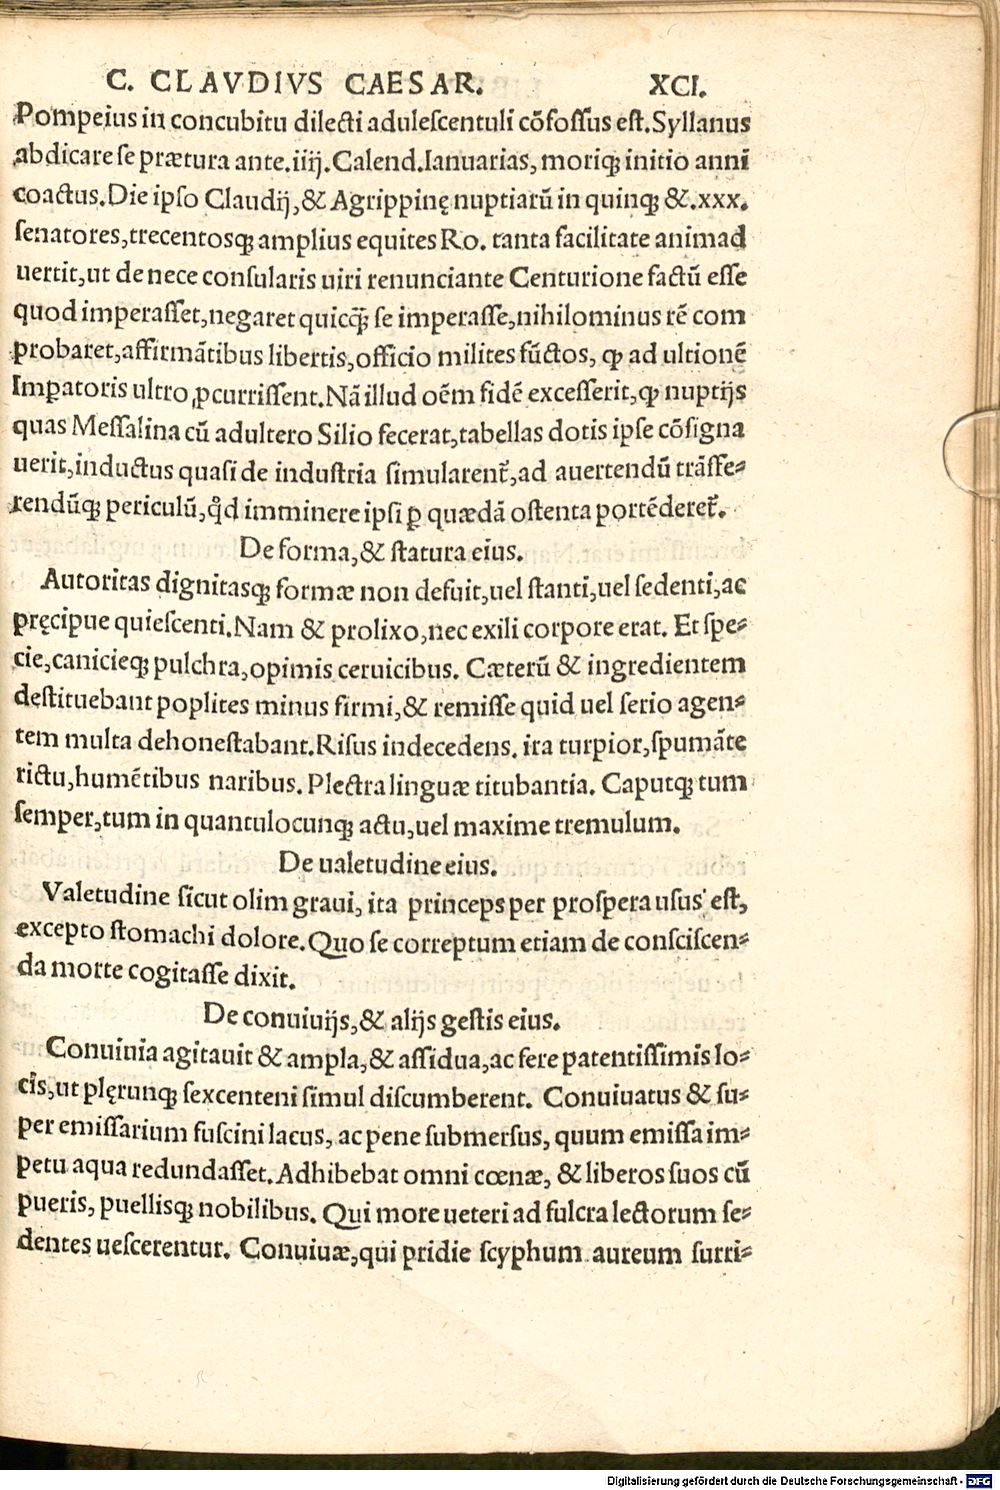 C. CLAVDIVS CAESAR. XCI.
Pompeius in concubitu dilecti adulescentuli cõfossus est. Syllanus
abdicare se prætura ante .iiij. Calend. Ianuarias, moriq; initio anni
coactus. Die ipso Claudij, & Agrippinę nuptiarũ in quinq; & .xxx.
senatores, trecentosq; amplius equites Ro. tanta facilitate animad
uertit, ut de nece consularis uiri renunciante Centurione factũ esse
quod imperasset, negaret quicq̃; se imperasse, nihilominus rẽ com
probaret, affirmãtibus libertis, officio milites fũctos, ꝙ ad ultionẽ
Imꝑatoris ultro ꝓcurrissent. Nã illud oẽm fidẽ excesserit, ꝙ nuptijs
quas Messalina cũ adultero Silio fecerat, tabellas dotis ipse cõsigna
uerit, inductus quasi de industria simularent᷑, ad auertendũ trãsfe-
rendũq; periculũ, qd̃ imminere ipsi ꝑ quædã ostenta portẽderet᷑.
De forma, & statura eius.
Autoritas dignitasq; formæ non defuit, uel stanti, uel sedenti, ac
pręcipue quiescenti. Nam & prolixo, nec exili corpore erat. Et spe-
cie, canicieq; pulchra, opimis ceruicibus. Cæterũ & ingredientem
destituebant poplites minus firmi, & remisse quid uel serio agen-
tem multa dehonestabant. Risus indecedens. ira turpior, spumãte
rictu, humẽtibus naribus. Plectra linguæ titubantia. Caputq; tum
semper, tum in quantulocunq; actu, uel maxime tremulum.
De ualetudine eius.
Valetudine sicut olim graui, ita princeps per prospera usus est,
excepto stomachi dolore. Quo se correptum etiam de consciscen-
da morte cogitasse dixit.
De conuiuijs, & alijs gestis eius.
Conuiuia agitauit & ampla, & assidua, ac fere patentissimis lo-
cis, ut plęrunq; sexcenteni simul discumberent. Conuiuatus & su-
per emissarium fuscini lacus, ac pene submersus, quum emissa im-
petu aqua redundasset. Adhibebat omni cœnæ, & liberos suos cũ
pueris, puellisq; nobilibus. Qui more ueteri ad fulcra lectorum se-
dentes uescerentur. Conuiuæ, qui pridie scyphum aureum surri-
Digitalisierung gefördert durch die Deutsche Forschungsgemeinschaft - DFG